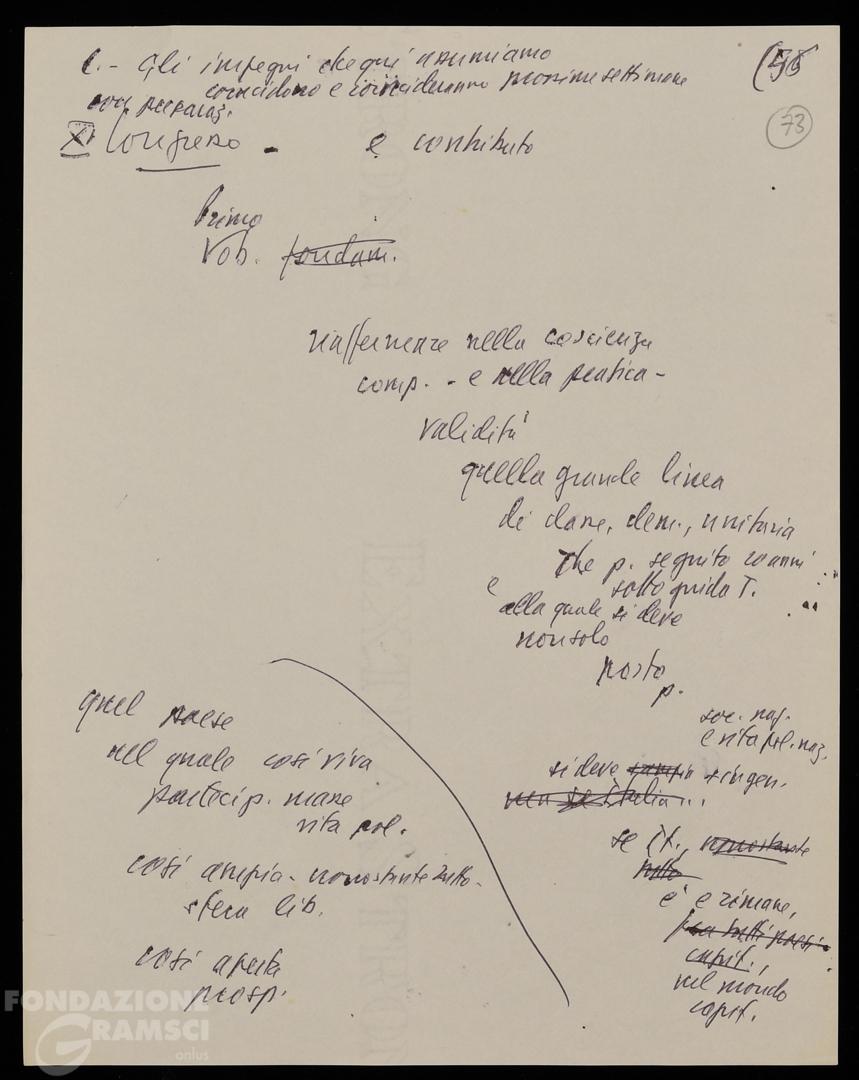 6.- Gli impegni che qui assumiamo
coincidono e coincideranno prossime settimane
con preparaz.
XI Congresso - e contributo
(58
73
Primo
Vob. fondam.
riaffermare nella coscienza
comp. - e nella pratica -
validità
quella grande linea
di classe, dem., unitaria
che p. seguito 20 anni
sotto guida T.
e
alla quale si deve
non solo
posto
p.
soc. naz.
e vita pol. naz.
si deve
se it., nonostante
tutto
è e rimane,
fra tutti paesi
capit.,
nel mondo
capit.
quel paese
nel quale così viva
partecip. masse
vita pol.
così ampia - nonostante tutto -
sfera lib.
così aperta
prosp.
FONDAZIONE
GRAMSCI
onlus